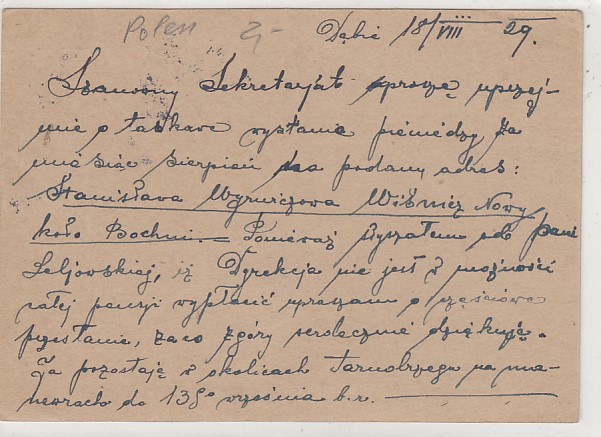 Polen 2,-
Dąbie 18/VIII 29.
Szanowny Sekretarjat proszę uprzej-
mie o łaskawe wysłanie pieniędzy za
miesiąc Sierpień na podany adres:
Stanisława Wiśnicz Nowy
koło Bochni. — Ponieważ słyszałem od pani
iż Dyrekcja nie jest w możności
całej pensji wypłacić upraszam o częściowe
przesłanie, za co z góry serdecznie dziękuję.
Ja pozostaję w okolicach Tarnobrzega na ma-
newrach do 13go września b.r. —